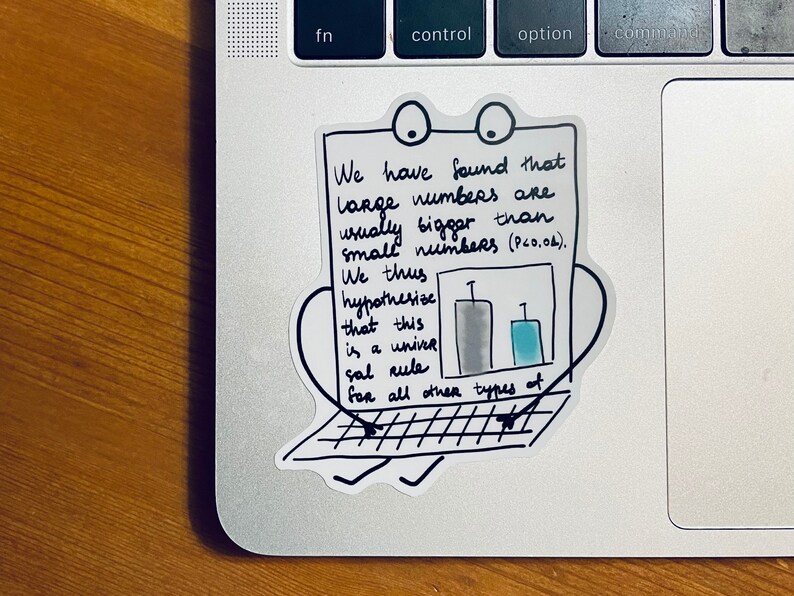 fn control option command
We have found that
large numbers are
usually bigger than
small numbers (P<0,01).
We thus
hypothesize
that this
is a univer
sal rule
for all other types of